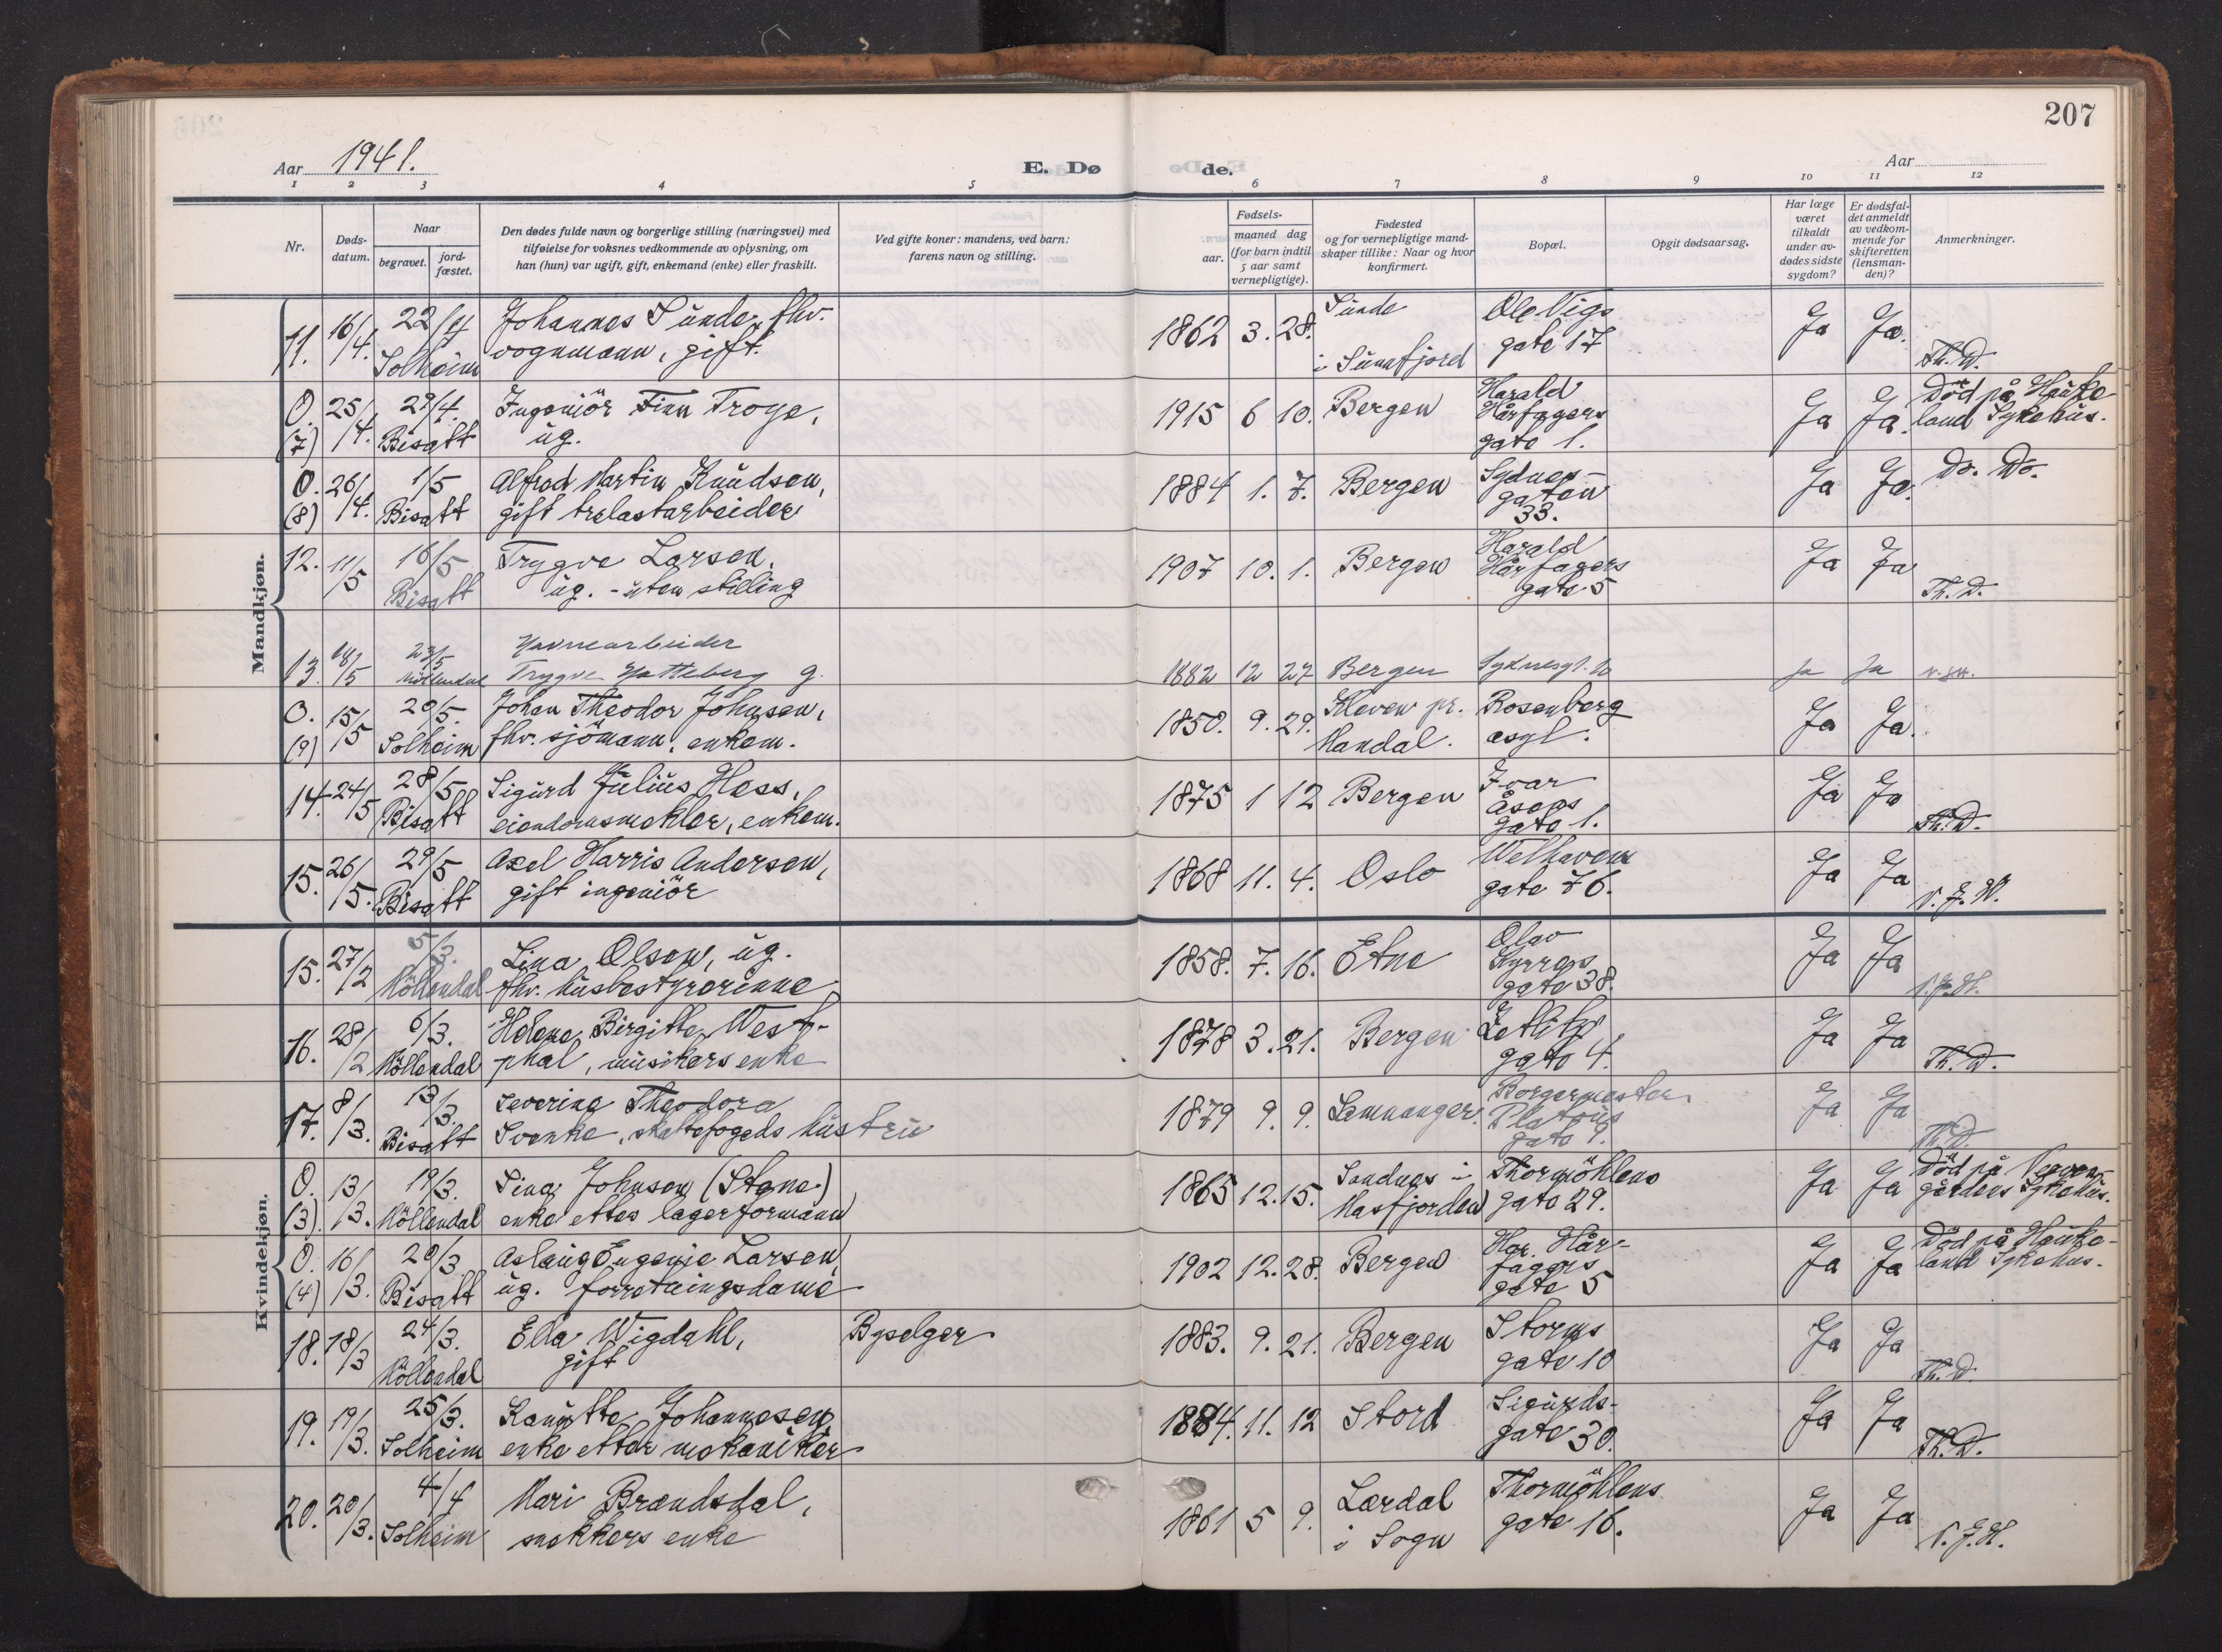 207
Aar 1941.
E. Dø
de.
Aar
1 2 3 4 5 6 7 8 9 10 11 12
Nr.
Døds-
datum.
Naar
begravet.
jord-
fæstet.
Den dødes fulde navn og borgerlige stilling (næringsvei) med
tilføielse for voksnes vedkommende av oplysning, om
han (hun) var ugift, gift, enkemand (enke) eller fraskilt.
Ved gifte koner: mandens, ved barn:
farens navn og stilling.
Fødsels-
aar.
maaned dag
(for barn indtil
5 aar samt
vernepligtige).
Fødested
og for vernepligtige mand-
skaper tillike: Naar og hvor
konfirmert.
Bopæl.
Opgit dødsaarsag.
Har læge
været
tilkaldt
under av-
dødes sidste
sygdom?
Er dødsfal-
det anmeldt
av vedkom-
mende for
skifteretten
(lensman-
den)?
Anmerkninger.
Mandkjøn.
11. 16/4. 22/4 Johannes Sunde, fhv. 1862 3. 28. Sunde Ole Vigs Ja Ja.
Solheim vognmann, gift. i Sunnfjord gate 17 Th. D.
O. 25/4. 29/4. Ingeniör Finn Troye, 1915 6 10. Bergen Harald Hårfagers Ja Ja. Död på Hauke-
(7) Bisatt ug. gate 1. land Sykehus.
O. 26/4. 1/5 Alfred Martin Knudsen, 1884 1. 7. Bergen Sydnes- Ja Ja. Do. Do.
(8) Bisatt gift trelastarbeider gaten 33.
12. 11/5 16/5 Trygve Larsen, 1907 10. 1. Bergen Harald Hårfagers Ja Ja
Bisatt ug. - uten stilling gate 5 Th. D.
Havnearbeider
13. 18/5 23/5 Möllendal Trygve Hatteberg g. 1882 12 27 Bergen Sydnesgt. Ja Ja
O. 15/5 20/5. Johan Theodor Johnsen, 1850. 9. 29. Kleven pr. Rosenberg Ja Ja.
(9) Solheim fhv. sjömann, enkem. Mandal. asyl.
14. 24/5 28/5 Sigurd Julius Hess, 1875 1 12 Bergen Ivar Åsens Ja Ja
Bisatt eiendomsmekler, enkem. gate 1. Th. D.
15. 26/5. 29/5 Axel Harris Andersen, 1868 11. 4. Oslo Welhavens Ja Ja
Bisatt gift ingeniör gate 76. N. J. H.
Kvindekjøn.
15. 27/2 5/3. Lina Olsen, ug. 1858. 7. 16. Etne Olav Kyrres Ja Ja
Möllendal fhv. husbestyrerinne gate 38. N. J. H.
16. 28/2 6/3. Helene Birgitte West- 1878 3. 21. Bergen Zetlitz Ja Ja
Möllendal phal, musikers enke gate 4. Th. D.
17. 8/3. 13/3. Severine Theodora 1879 9. 9. Samnanger. Borgermester Ja Ja
Bisatt Svenke, skattefogeds hustru Platous gate 9. Th. D.
O. 13/3. 19/3. Sina Johnsen (Stene) 1865 12. 15. Sandnes i Thormöhlens Ja Ja Död på Neven-
(3). Möllendal enke etter lagerformann Masfjorden gate 29. gårdens Sykehus.
O. 16/3. 20/3 Aslaug Eugenie Larsen, 1902 12. 28. Bergen Har. Hår- Ja Ja Död på Hauke-
(4) Bisatt ug. forretningsdame fagers gate 5 land Sykehus.
18. 18/3 24/3. Ella Wigdahl, Byselger 1883. 9. 21. Bergen Storms Ja Ja
Möllendal gift gate 10 Th. D.
19. 19/3. 25/3. Johannesen, 1884. 11. 12 Stord Sigurds- Ja Ja
Solheim enke etter mekaniker gate 30. Th. D.
20. 20/3. 4/4 Mari Brændsdal, 1861 5 9. Lærdal Thormöhlens Ja Ja
Solheim snekkers enke i Sogn gate 16. N. J. H.